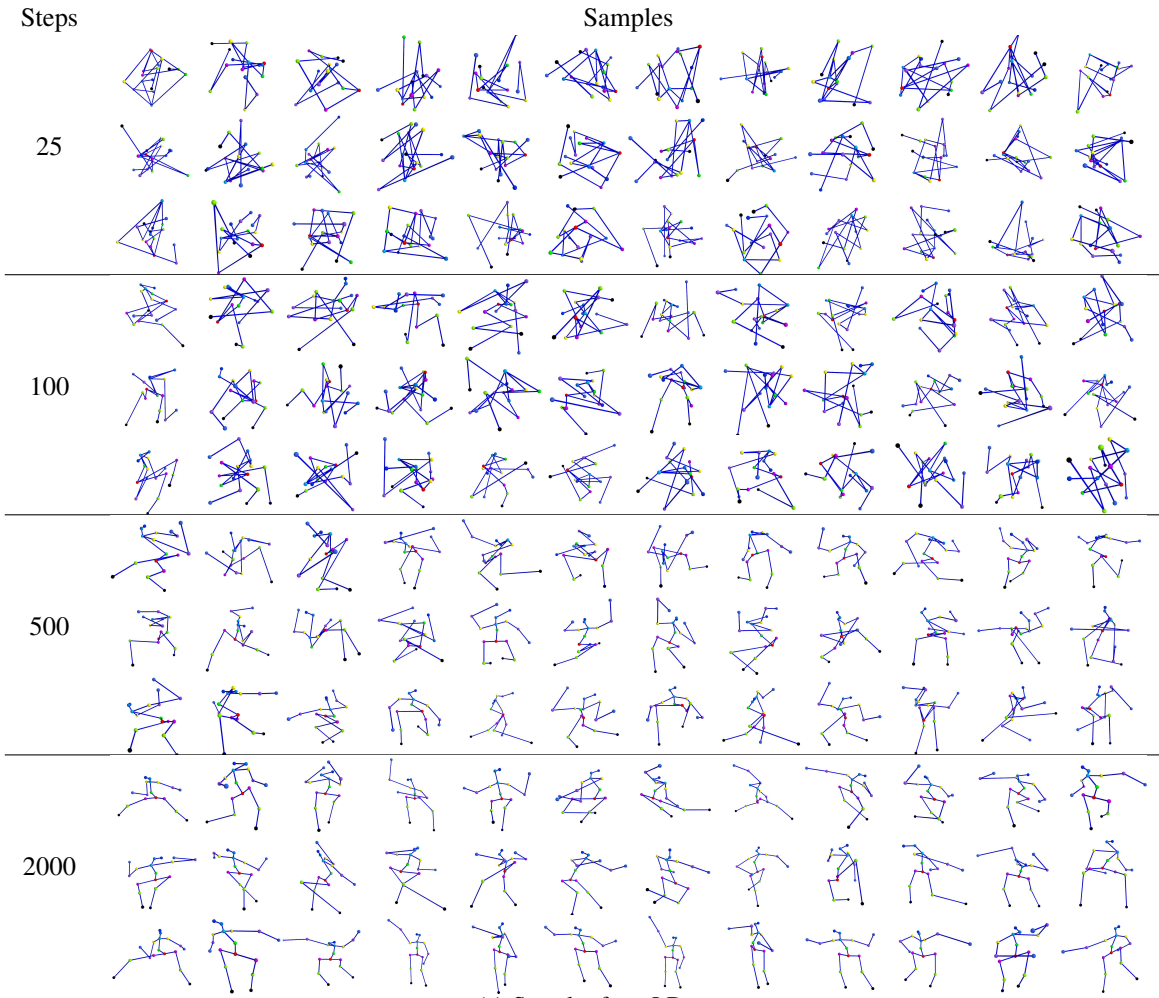 Steps
Samples
25
100
500
2000